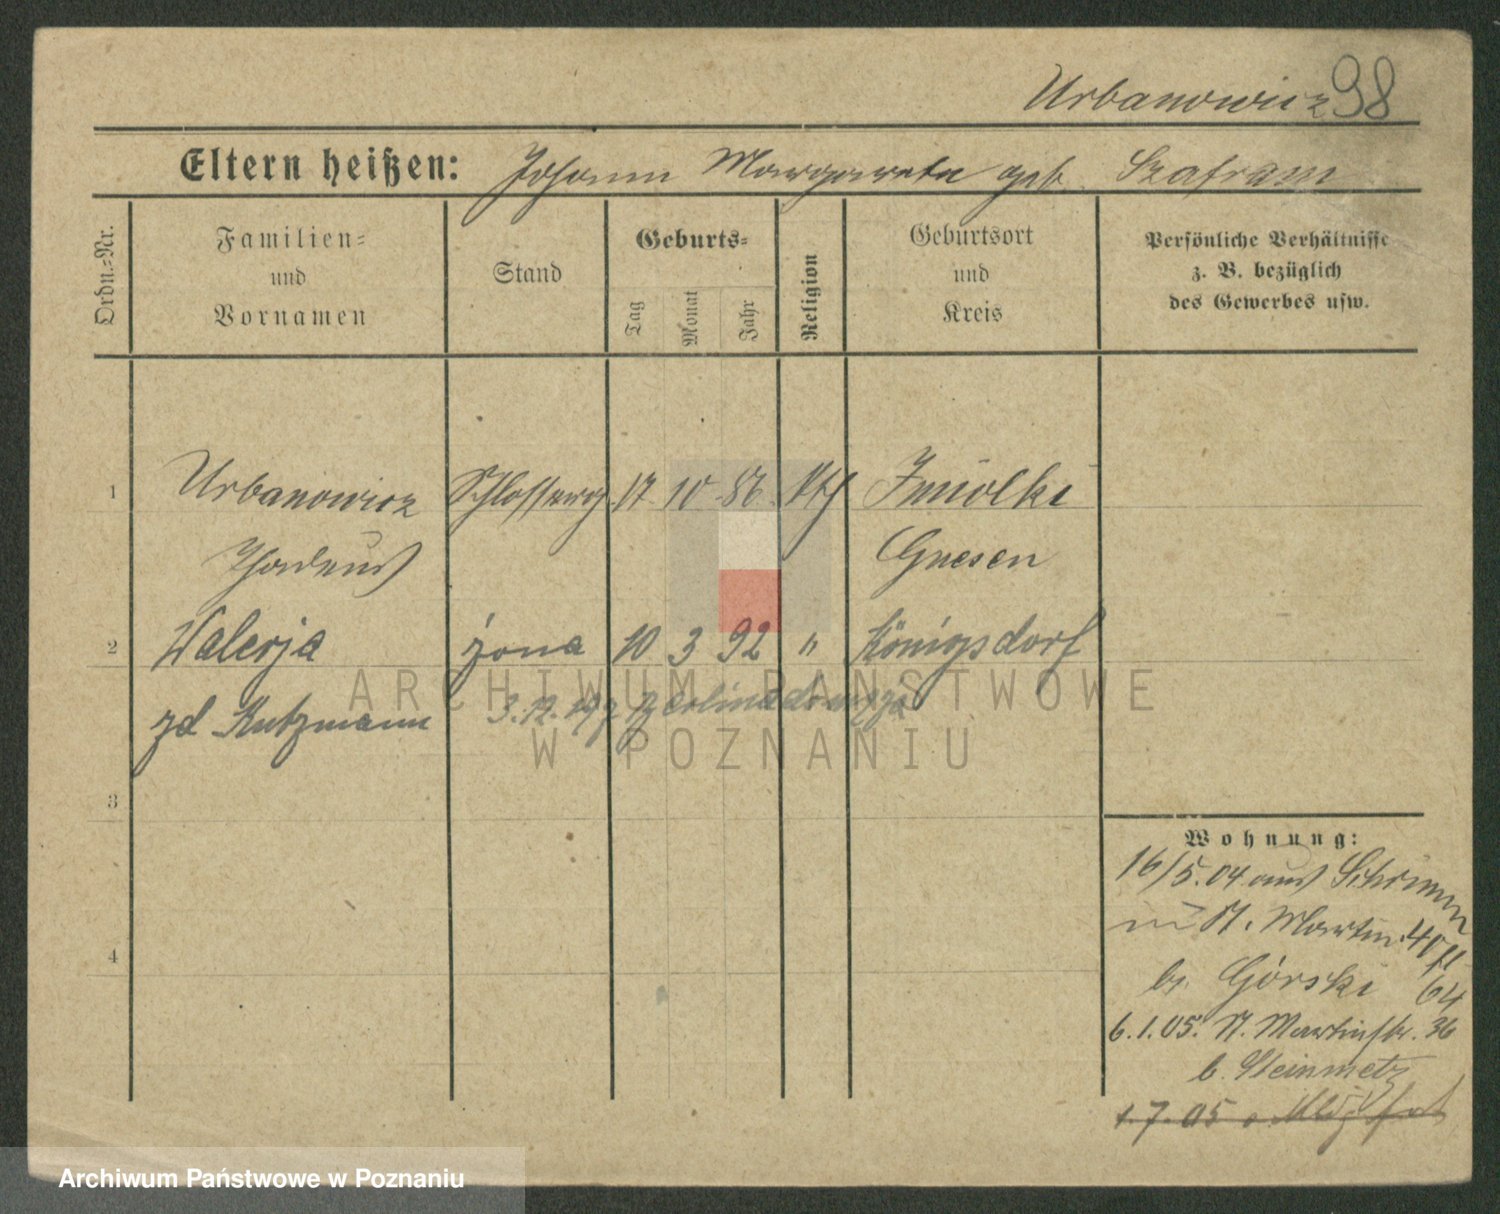 Urbanowicz 98
Eltern heißen: Johann Margareta geb. Szafram
Ordn.=Nr.
Familien=
und
Vornamen
Stand
Geburts=
Tag
Monat
Jahr
Religion
Geburtsort
und
Kreis
Persönliche Verhältnisse
z. B. bezüglich
des Gewerbes usw.
1 Urbanowicz 17 10 86 kth Imiolki
Thadeus Gnesen
2 Walerja żona 10 3 92 " Königsdorf
zd Kutzmann 3.12.19 z Berlina
3
4
Wohnung:
16/5.04 aus Schrimm
in St. Martin 40
b. Górski 64
6.1.05. St. Martinstr. 36
b. Steinmetz
1.7.05
ARCHIWUM PAŃSTWOWE
W POZNANIU
Archiwum Państwowe w Poznaniu